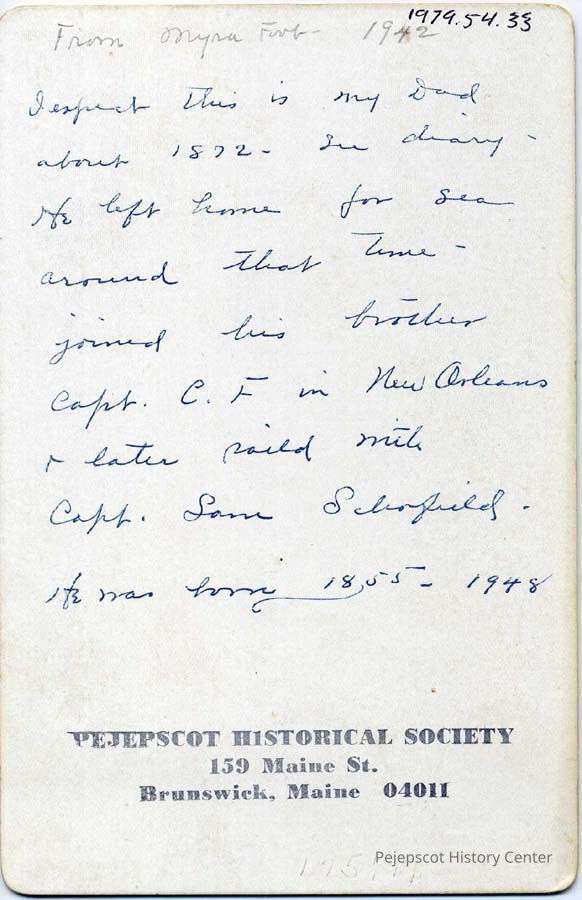 1979.54.33
From Myra Foot- 1942
I expect this is my Dad
about 1872 - See diary -
He left home for sea
around that time -
joined his brother
Capt. C. F in New Orleans
& later saild with
Capt. Sam Schofield.
He was born 1855 - 1948
PEJEPSCOT HISTORICAL SOCIETY
159 Maine St.
Brunswick, Maine 04011
Pejepscot History Center